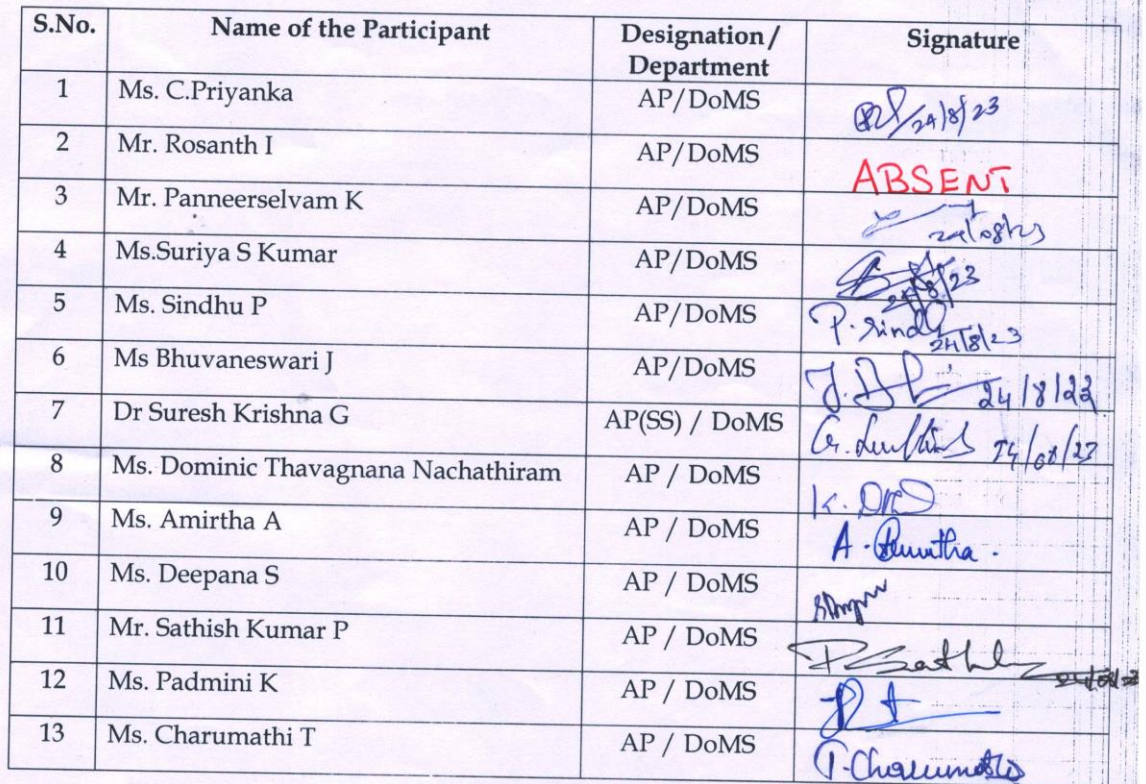 S.No. Name of the Participant Designation / Department Signature
1 Ms. C.Priyanka AP/DoMS 24/8/23
2 Mr. Rosanth I AP/DoMS ABSENT
3 Mr. Panneerselvam K AP/DoMS
4 Ms.Suriya S Kumar AP/DoMS 24/8/23
5 Ms. Sindhu P AP/DoMS P. Sindhu 24/8/23
6 Ms Bhuvaneswari J AP/DoMS 24/8/23
7 Dr Suresh Krishna G AP(SS) / DoMS
8 Ms. Dominic Thavagnana Nachathiram AP / DoMS
9 Ms. Amirtha A AP / DoMS A. Amirtha.
10 Ms. Deepana S AP / DoMS
11 Mr. Sathish Kumar P AP / DoMS
12 Ms. Padmini K AP / DoMS
13 Ms. Charumathi T AP / DoMS T. Charumathi